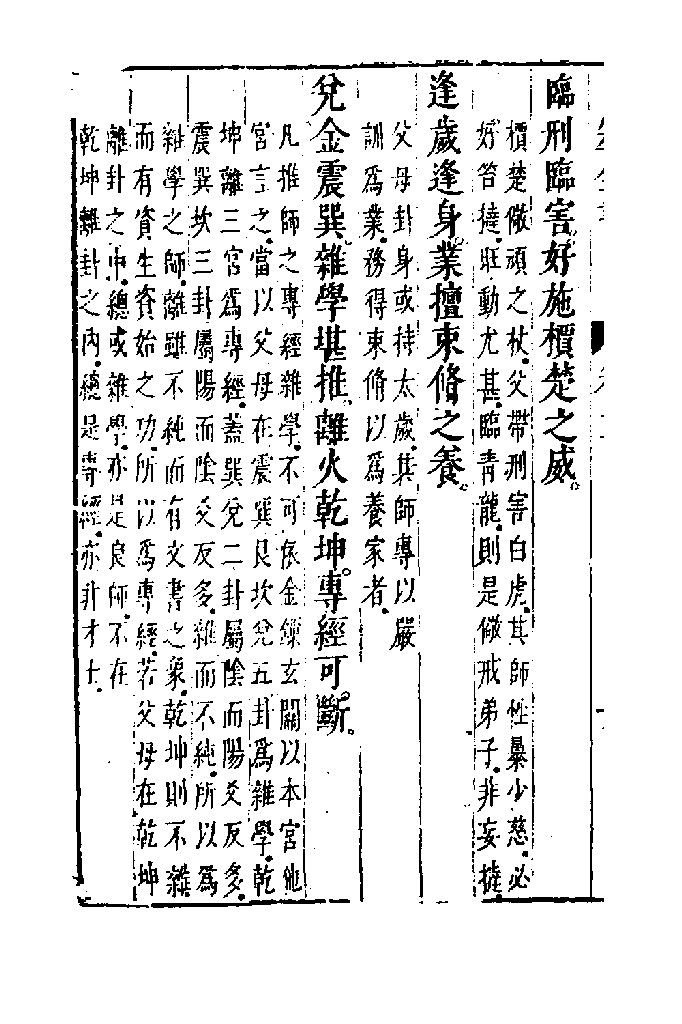 臨刑臨害。好施檟楚之威。
檟楚儆頑之杖。父帶刑害白虎。其師性暴少慈。必
好笞撻。旺動尤甚。臨青龍。則是儆戒弟子。非妄撻。
逢歲逢身。業擅束脩之養。
父母卦身或待太歲。其師專以嚴
訓為業。務得束脩以為養家者。
兌金震巽。雜學堪推。離火乾坤。專經可斷。
凡推師之專經雜學。不可依金鎖玄關以本宮他
宮言之。當以父母在震巽艮坎兌五卦為雜學。乾
坤離三宮為專經。蓋巽兌二卦屬陰而陽爻反多。
震艮坎三卦屬陽而陰爻反多。雜而不純。所以為
雜學之師。離雖不純而有文書之象。乾坤則不雜
而有資生資始之功。所以為專經。若父母在乾坤
離卦之中。總或雜學。亦是良師。不在
乾坤離卦之內。總是專經。亦非才士。